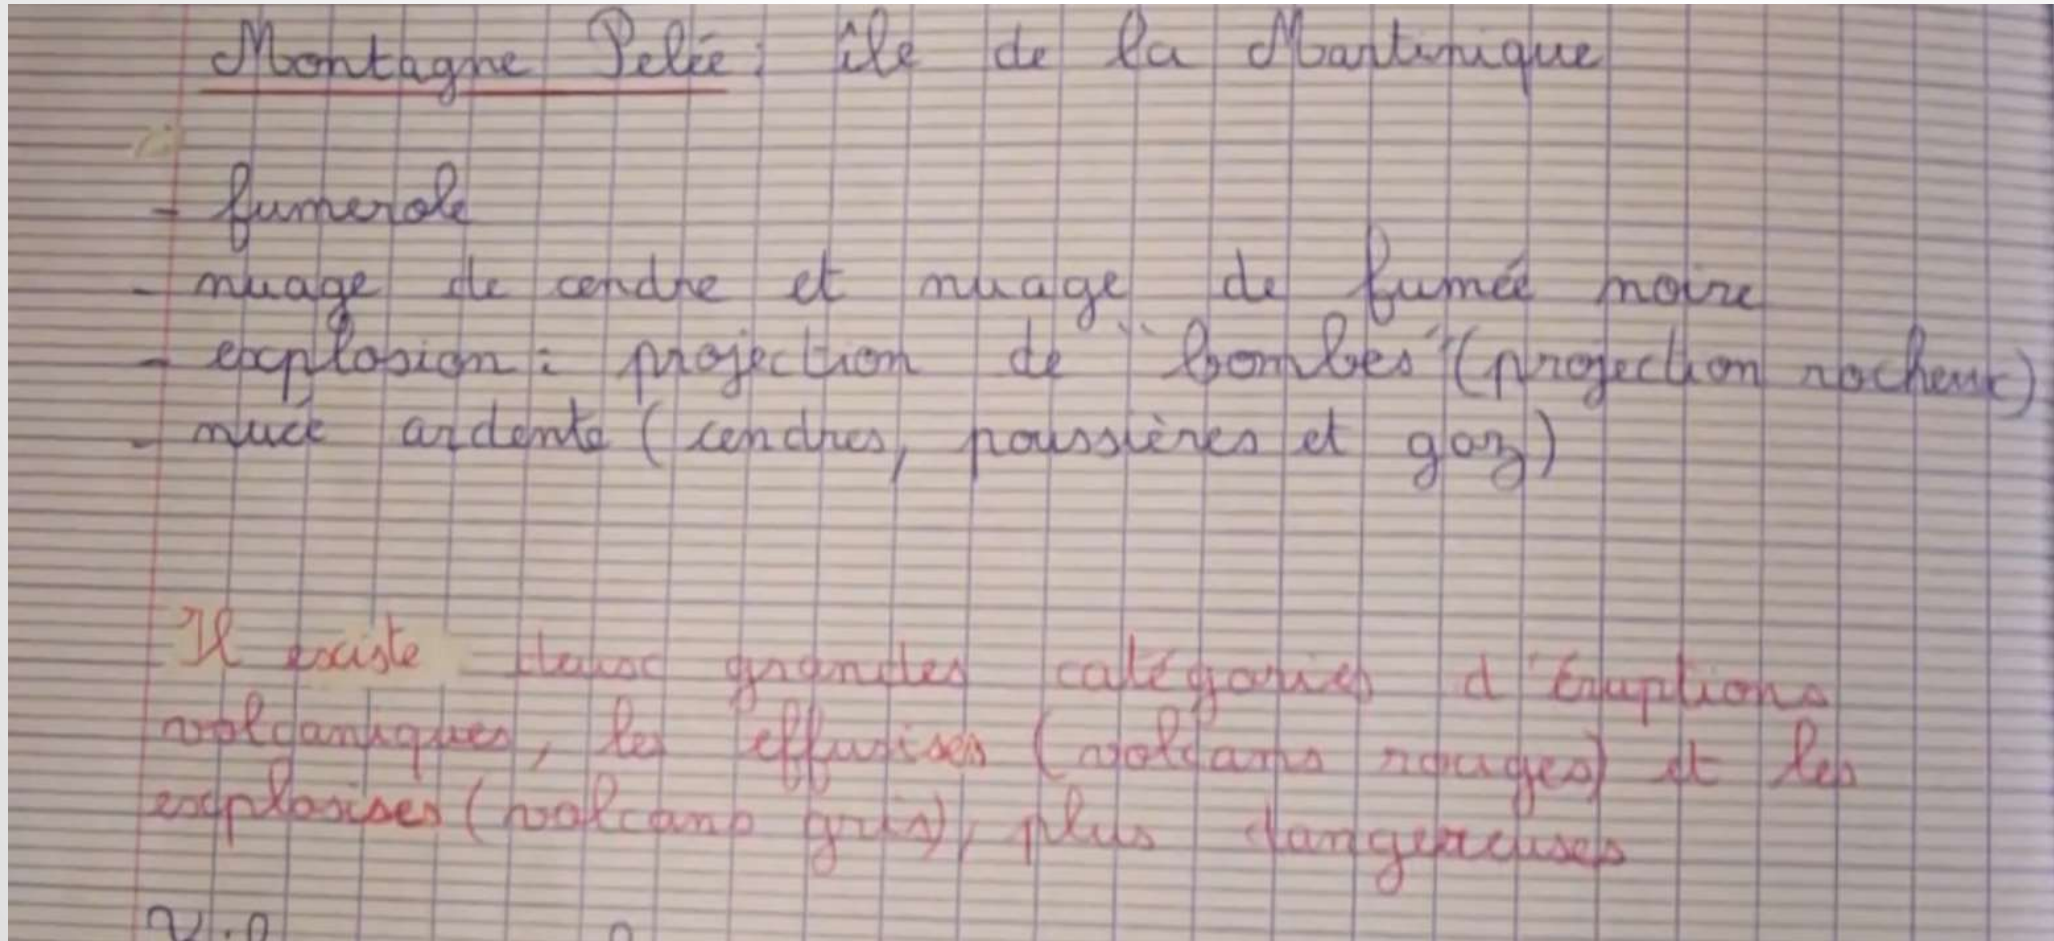 Montagne Pelée : île de la Martinique
- fumerole
- nuage de cendre et nuage de fumée noire
- explosion : projection de "bombes" (projection rocheux)
- nuée ardente (cendres, poussières et gaz)
Il existe deux grandes catégories d'éruptions
volcaniques, les effusises (volcans rouges) et les
explosises (volcans gris), plus dangereuses